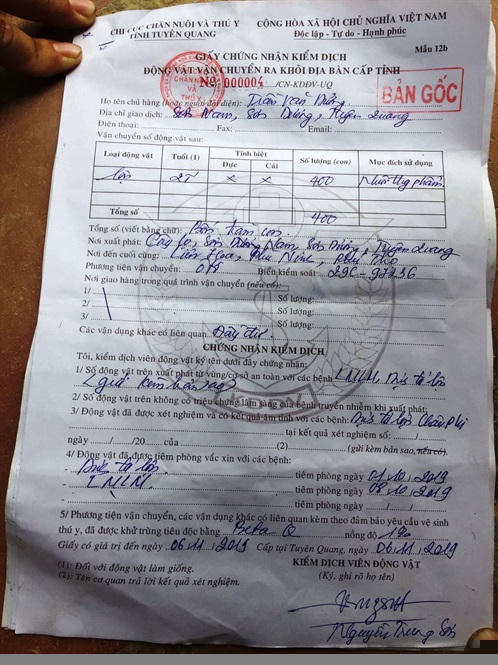 CHI CỤC CHĂN NUÔI VÀ THÚ Y CỘNG HÒA XÃ HỘI CHỦ NGHĨA VIỆT NAM
TỈNH TUYÊN QUANG Độc lập - Tự do - Hạnh phúc
Mẫu 12b
GIẤY CHỨNG NHẬN KIỂM DỊCH
ĐỘNG VẬT VẬN CHUYỂN RA KHỎI ĐỊA BÀN CẤP TỈNH
CHĂN NUÔI VÀ THÚ Y
Nº 000004 /CN-KDĐV-UQ
BẢN GỐC
Họ tên chủ hàng (hoặc người đại diện): Trần Văn Dũng
Địa chỉ giao dịch: Sơn Nam, Sơn Dương, Tuyên Quang
Điện thoại: Fax: Email:
Vận chuyển số động vật sau:
Loại động vật Tuổi (1) Tính biệt Số lượng (con) Mục đích sử dụng
Đực Cái
Lợn 2T x x 400 Nuôi Thg phẩm
Tổng số 400
Tổng số (viết bằng chữ): Bốn trăm con.
Nơi xuất phát: Sơn Nam, Sơn Dương, Tuyên Quang
Nơi đến cuối cùng: Liên Hoa, Phù Ninh, Phú Thọ
Phương tiện vận chuyển: Ô tô Biển kiểm soát: 29C-97236
Nơi giao hàng trong quá trình vận chuyển (nếu có):
1/ Số lượng:
2/ Số lượng:
3/ Số lượng:
Các vận dụng khác có liên quan: Đầy đủ
CHỨNG NHẬN KIỂM DỊCH
Tôi, kiểm dịch viên động vật ký tên dưới đây chứng nhận:
1/ Số động vật trên xuất phát từ vùng/cơ sở an toàn với các bệnh: LMLM, Dịch tả lợn
(gửi kèm bản sao)
2/ Số động vật trên không có triệu chứng lâm sàng của bệnh truyền nhiễm khi xuất phát;
3/ Động vật đã được xét nghiệm và có kết quả âm tính với các bệnh: Dịch tả lợn Châu Phi
tại kết quả xét nghiệm số: /
ngày / /20 của (2) (gửi kèm bản sao, nếu có).
4/ Động vật đã được tiêm phòng vắc xin với các bệnh:
- Dịch tả lợn tiêm phòng ngày 01/10/2019
- LMLM tiêm phòng ngày 08/10/2019
- tiêm phòng ngày / /
5/ Phương tiện vận chuyển, các vận dụng khác có liên quan kèm theo đảm bảo yêu cầu vệ sinh
thú y, đã được khử trùng tiêu độc bằng Beta-Q nồng độ 1%
Giấy có giá trị đến ngày 06/11/2019 Cấp tại Tuyên Quang, ngày 06/11/2019
(1): Đối với động vật làm giống. KIỂM DỊCH VIÊN ĐỘNG VẬT
(2): Tên cơ quan trả lời kết quả xét nghiệm. (Ký, ghi rõ họ tên)
Nguyễn Trung Sơn